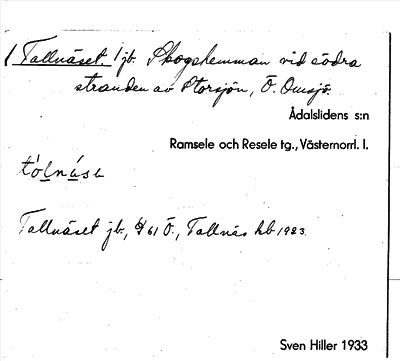 1 Tallnäset 1 jb. Skogshemman vid södra
stranden av Storsjön, Ö. Omsjö.
Ådalslidens s:n
Ramsele och Resele tg., Västernorrl. l.
Tallnäset jb., 61 Ö., Tallnäs hb 1923.
Sven Hiller 1933